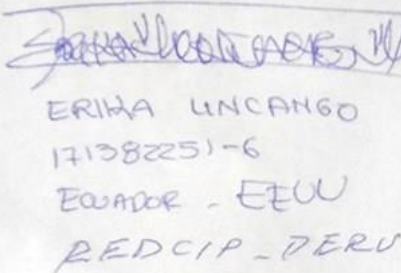 ERIKA UNCANGO
171382251-6
ECUADOR - EEUU
REDCIP - PERU